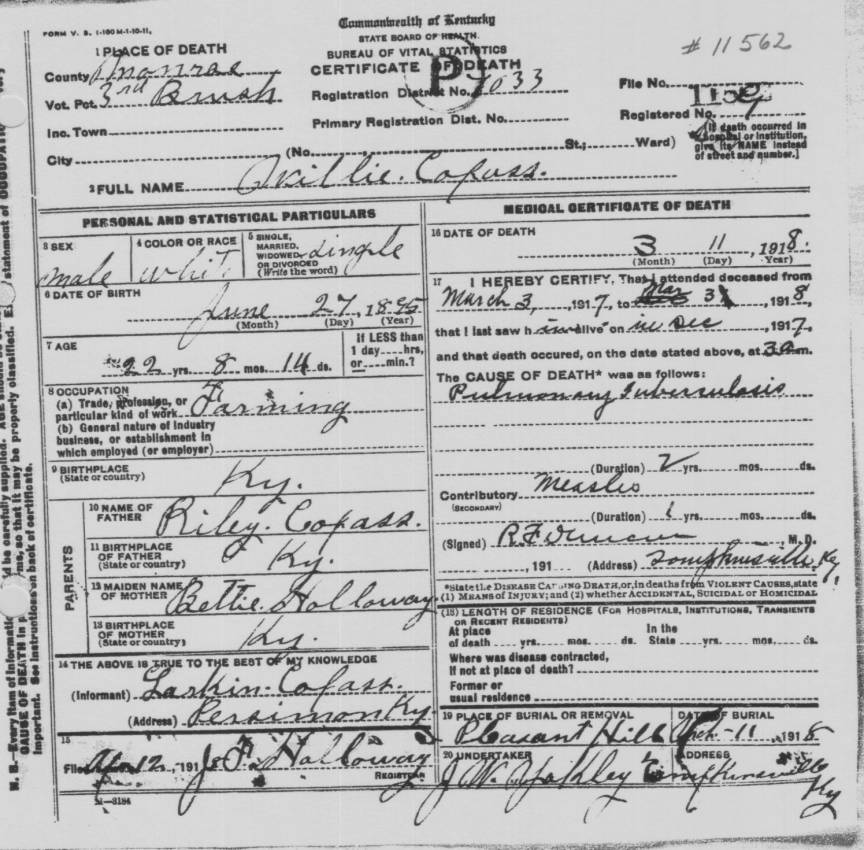 FORM V. S. 1-100 M-1-10-11.
Commonwealth of Kentucky
STATE BOARD OF HEALTH.
BUREAU OF VITAL STATISTICS
CERTIFICATE OF DEATH
# 11562
1 PLACE OF DEATH
County Monroe
Vot. Pct. 3rd Brush
Inc. Town
City
Registration District No. 1033
Primary Registration Dist. No.
File No.
Registered No.
(No. St.; Ward)
[If death occurred in a hospital or institution, give its NAME instead of street and number.]
2 FULL NAME Willie. Copass.
PERSONAL AND STATISTICAL PARTICULARS
3 SEX male
4 COLOR OR RACE white
5 SINGLE, MARRIED, WIDOWED OR DIVORCED (Write the word) single
6 DATE OF BIRTH June 27, 1895
(Month) (Day) (Year)
7 AGE 22 yrs. 8 mos. 14 ds.
If LESS than 1 day....hrs, or....min.?
8 OCCUPATION
(a) Trade, profession, or particular kind of work Farming
(b) General nature of industry business, or establishment in which employed (or employer)
9 BIRTHPLACE (State or country) Ky.
PARENTS
10 NAME OF FATHER Riley. Copass.
11 BIRTHPLACE OF FATHER (State or country) Ky.
12 MAIDEN NAME OF MOTHER Bettie. Holloway
13 BIRTHPLACE OF MOTHER (State or country) Ky.
14 THE ABOVE IS TRUE TO THE BEST OF MY KNOWLEDGE
(Informant) Larkin. Copass.
(Address) Persimon Ky
15
Filed 12, 191 J. F. Holloway
REGISTRAR
MEDICAL CERTIFICATE OF DEATH
16 DATE OF DEATH
3 11, 1918.
(Month) (Day) Year
17 I HEREBY CERTIFY, That I attended deceased from
March 3, 1917, to Mar 3, 1918,
that I last saw him alive on in Dec, 1917,
and that death occured, on the date stated above, at 3 a m.
The CAUSE OF DEATH* was as follows:
Pulmonary Tuberculosis
(Duration) 2 yrs. mos. ds.
Contributory Measles
(SECONDARY)
(Duration) 1 yrs. mos. ds.
(Signed) R F Duncan, M. D.
, 191 (Address) Tompkinsville, Ky,
*State the DISEASE CAUSING DEATH, or, in deaths from VIOLENT CAUSES, state
(1) MEANS OF INJURY; and (2) whether ACCIDENTAL, SUICIDAL or HOMICIDAL
(18) LENGTH OF RESIDENCE (FOR HOSPITALS, INSTITUTIONS, TRANSIENTS
OR RECENT RESIDENTS)
At place of death .... yrs. mos. ds. In the State yrs. mos. ds.
Where was disease contracted,
If not at place of death?
Former or
usual residence
19 PLACE OF BURIAL OR REMOVAL Pleasant Hill
DATE OF BURIAL -11, 1918
20 UNDERTAKER J. W. Yokley
ADDRESS Tompkinsville Ky
11-3184
N. B.—Every item of informatio
CAUSE OF DEATH in p
important. See instructions on back of certificate.
d be carefully supplied. AGE
rms, so that it may be properly classified.
statement of OCCUPATIO